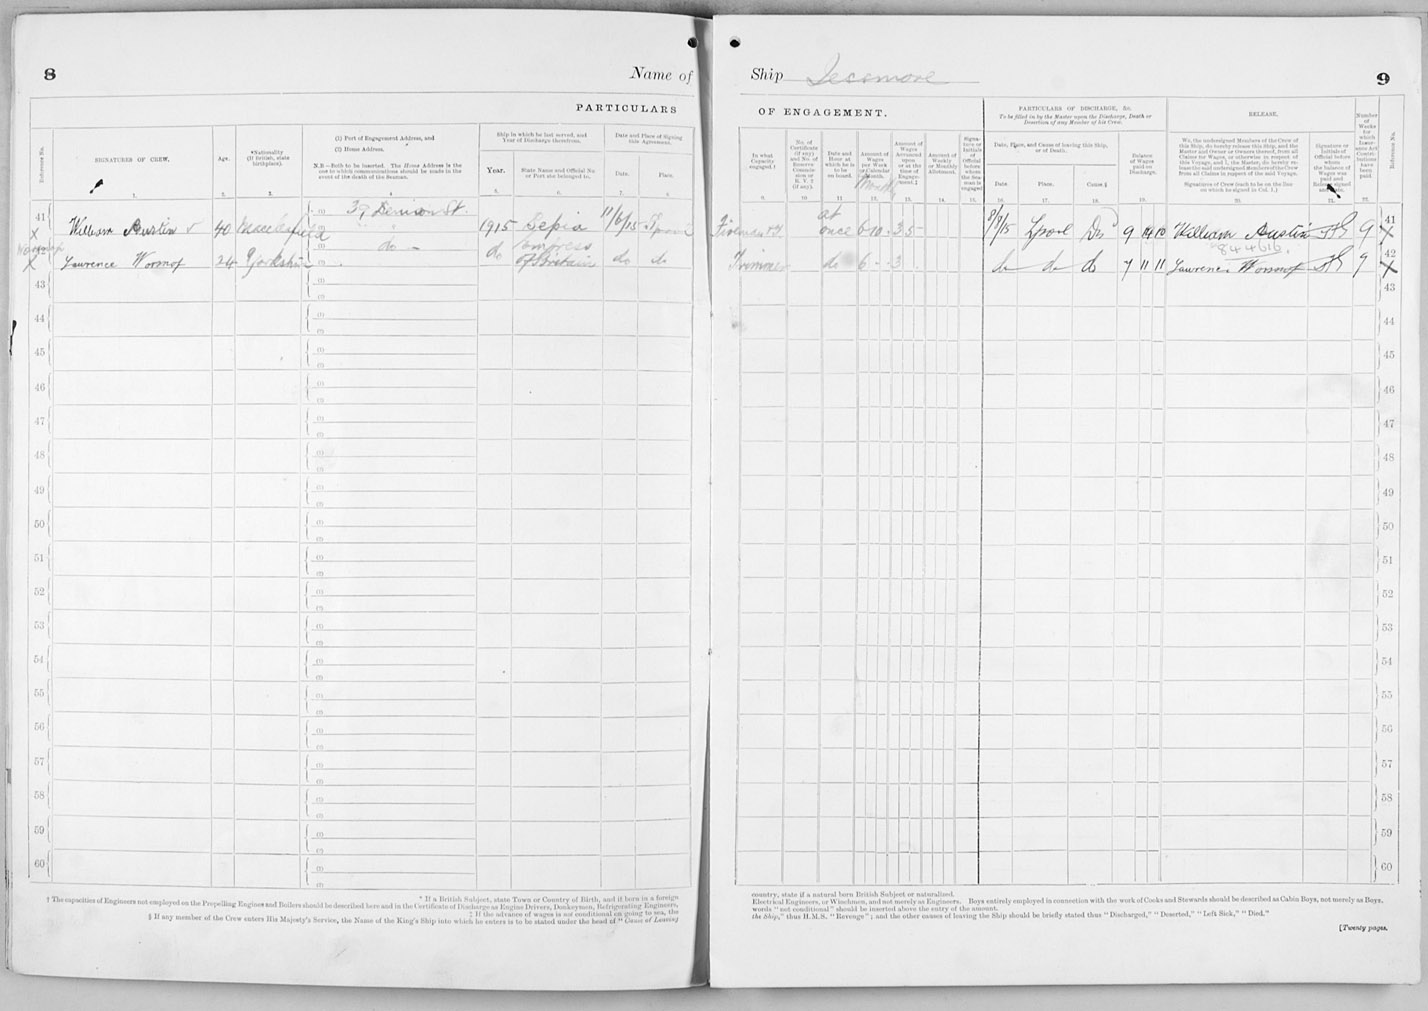 8
Name of
PARTICULARS
Reference No.
SIGNATURES OF CREW.
Age.
*Nationality
(If British, state
birthplace).
(1) Port of Engagement Address, and
(2) Home Address.
N.B.—Both to be inserted. The Home Address is the
one to which communications should be made in the
event of the death of the Seaman.
Ship in which he last served, and
Year of Discharge therefrom.
Year.
State Name and Official No.
or Port she belonged to.
Date and Place of Signing
this Agreement.
Date.
Place.
1.
2.
3.
4
5.
6.
7.
8
41
X
William Austin
40
Macclesfield
(1) 39 Denison St.
1915
Sepia
11/6/15
Lpool
X
Lawrence Wormof
24
Yorkshire
do -
do
Empress
of Britain
do
do
43
44
45
46
47
48
49
50
51
52
53
54
55
56
57
58
59
60
† The capacities of Engineers not employed on the Propelling Engines and Boilers should be described here and in the Certificate of Discharge as Engine Drivers, Donkeymen, Refrigerating Engineers,
* If a British Subject, state Town or Country of Birth, and if born in a foreign
‡ If the advance of wages is not conditional on going to sea, the
§ If any member of the Crew enters His Majesty's Service, the Name of the King's Ship into which he enters is to be stated under the head of "Cause of Leaving
Ship
9
OF ENGAGEMENT.
In what
Capacity
engaged.†
No. of
Certificate
(if any)
and No. of
Reserve
Commis-
sion or
R. V. 2
(if any).
Date and
Hour at
which he is
to be
on board.
Amount of
Wages
per Week
or Calendar
Month.
Amount of
Wages
Advanced
upon
or at the
time of
Engage-
ment.‡
Amount of
Weekly
or Monthly
Allotment.
Signa-
ture or
Initials
of
Official
before
whom
the Sea-
man is
engaged
PARTICULARS OF DISCHARGE, &c.
To be filled in by the Master upon the Discharge, Death or
Desertion of any Member of his Crew.
Date, Place, and Cause of leaving this Ship,
or of Death.
Date.
Place.
Cause.§
Balance
of Wages
paid on
Discharge.
RELEASE.
We, the undersigned Members of the Crew of
this Ship, do hereby release this Ship, and the
Master and Owner or Owners thereof, from all
Claims for Wages, or otherwise in respect of
this Voyage, and I, the Master, do hereby re-
lease the said undersigned Members of the Crew
from all Claims in respect of the said Voyage.
Signatures of Crew (each to be on the line
on which he signed in Col. 1.)
Signature or
Initials of
Official before
whom
the balance of
Wages was
paid and
Release signed
Number
of
Weeks
for
which
Insur-
ance Act
Contri-
butions
have
been
paid.
Reference No.
9.
10
11
12.
13.
14.
15.
16.
17.
18.
19.
20.
21.
22.
Fireman
at
once
6-10-
3 5-
8/9/15
Lpool
Dis
9 14 10
William Austin
9
41
X
844616.
Trimmer
do
6 - -
3
do
do
do
7 11 11
Lawrence Wormof
9
42
X
43
44
45
46
47
48
49
50
51
52
53
54
55
56
57
58
59
60
country, state if a natural born British Subject or naturalised.
Electrical Engineers, or Winchmen, and not merely as Engineers. Boys entirely employed in connection with the work of Cooks and Stewards should be described as Cabin Boys, not merely as Boys.
words "not conditional" should be inserted above the entry of the amount.
the Ship," thus H.M.S. "Revenge"; and the other causes of leaving the Ship should be briefly stated thus "Discharged," "Deserted," "Left Sick," "Died."
[Twenty pages.